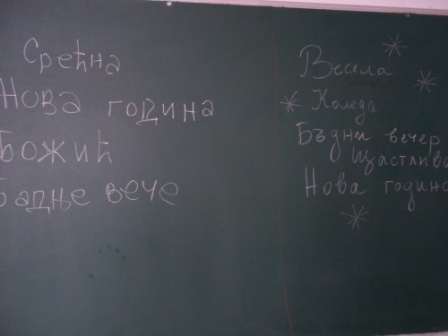 Срећна
Нова година
Божић
Бадње вече
Весела
Коледа
Бъдни вечер
Щастлива
Нова година